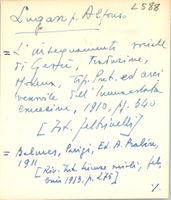 L588
Lugan p. Alfonso
= L'insegnamento sociale
di Gesù, Traduzione,
Modena, Tip. Pont. ed arci
vescovile dell'Immacolata
Concezione, 1910, pp. 340
[Ist. Feltrinelli]
= Balmes, Parigi, Ed. A. Tralin,
1911
[Riv. Int. Scienze sociali, feb
braio 1913. p. 275]
%